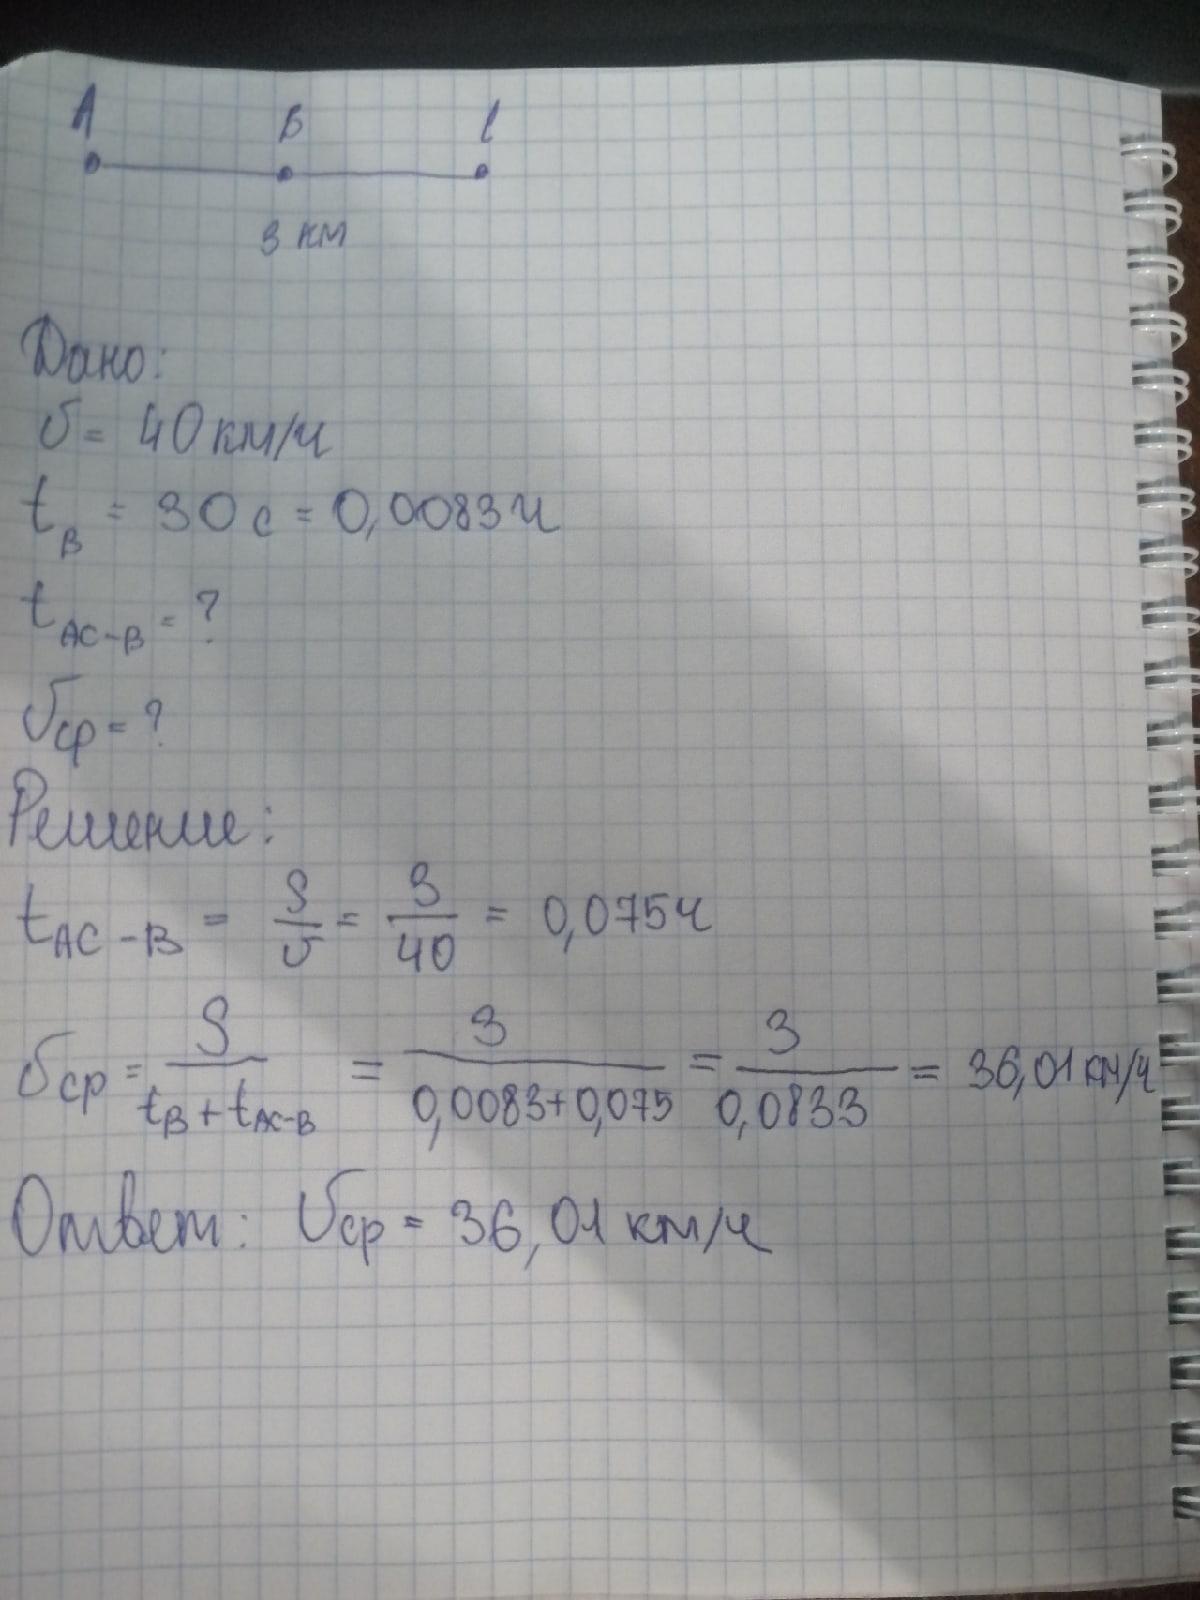 A В С
3 км
Дано:
υ = 40 км/ч
t_B = 30 с = 0,0083 ч
t_AC-B = ?
υ_ср = ?
Решение:
t_AC-B = S/υ = 3/40 = 0,075 ч
υ_ср = S/(t_B + t_AC-B) = 3/(0,0083+0,075) = 3/0,0833 = 36,01 км/ч
Ответ: υ_ср = 36,01 км/ч